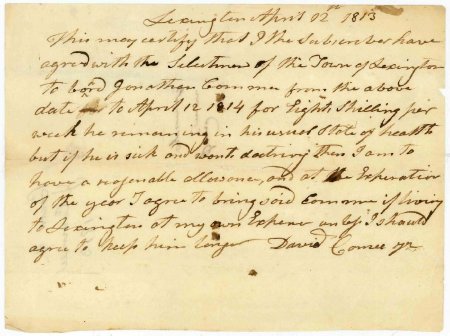 Lexington April 12th 1813
This may certify that I the Subscriber have
agreed with the Selectmen of the Town of Lexington
to bord Jonathan Comme from the above
date to April 12 1814 for Eight Shilling per
week he remaining in his usual State of health
but if he is sick and wants doctring then I am to
have a reasonable allowance, and at the Experation
of the year I agree to bring said Comme if living
to Lexington at my own Expence unless I should
agree to keep him longer David Comee Jr